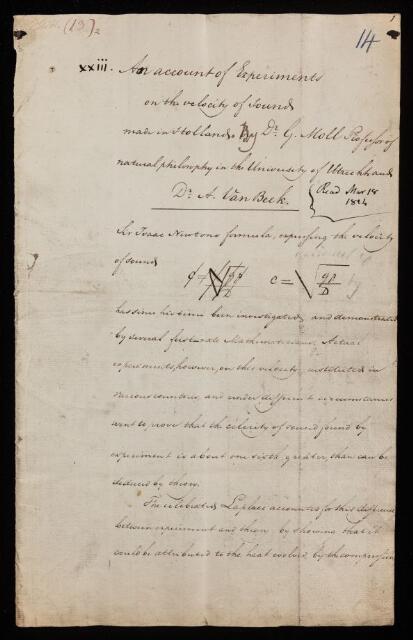 (19)2
14
xxiii. An account of Experiments
on the velocity of Sound
made in Holland. By Dr. G. Moll Professor of
natural philosophy in the University of Utrecht and
Dr. A. Van Beek. Read Mar 18
1824
Sir Isaac Newtons formula, expressing the velocity
of sound
c = √gp/D
has since his time been investigated and demonstrated
by several first rate Mathematicians. Actual
experiments, however, on this velocity, instituted in
various countries, and under different circumstances
went to prove that the celerity of sound found by
experiment is about one sixth greater, than can be
deduced by theory.
The celebrated Laplace accounts for this difference
between experiment and theory by showing that it
could be attributed to the heat evolved by the compression